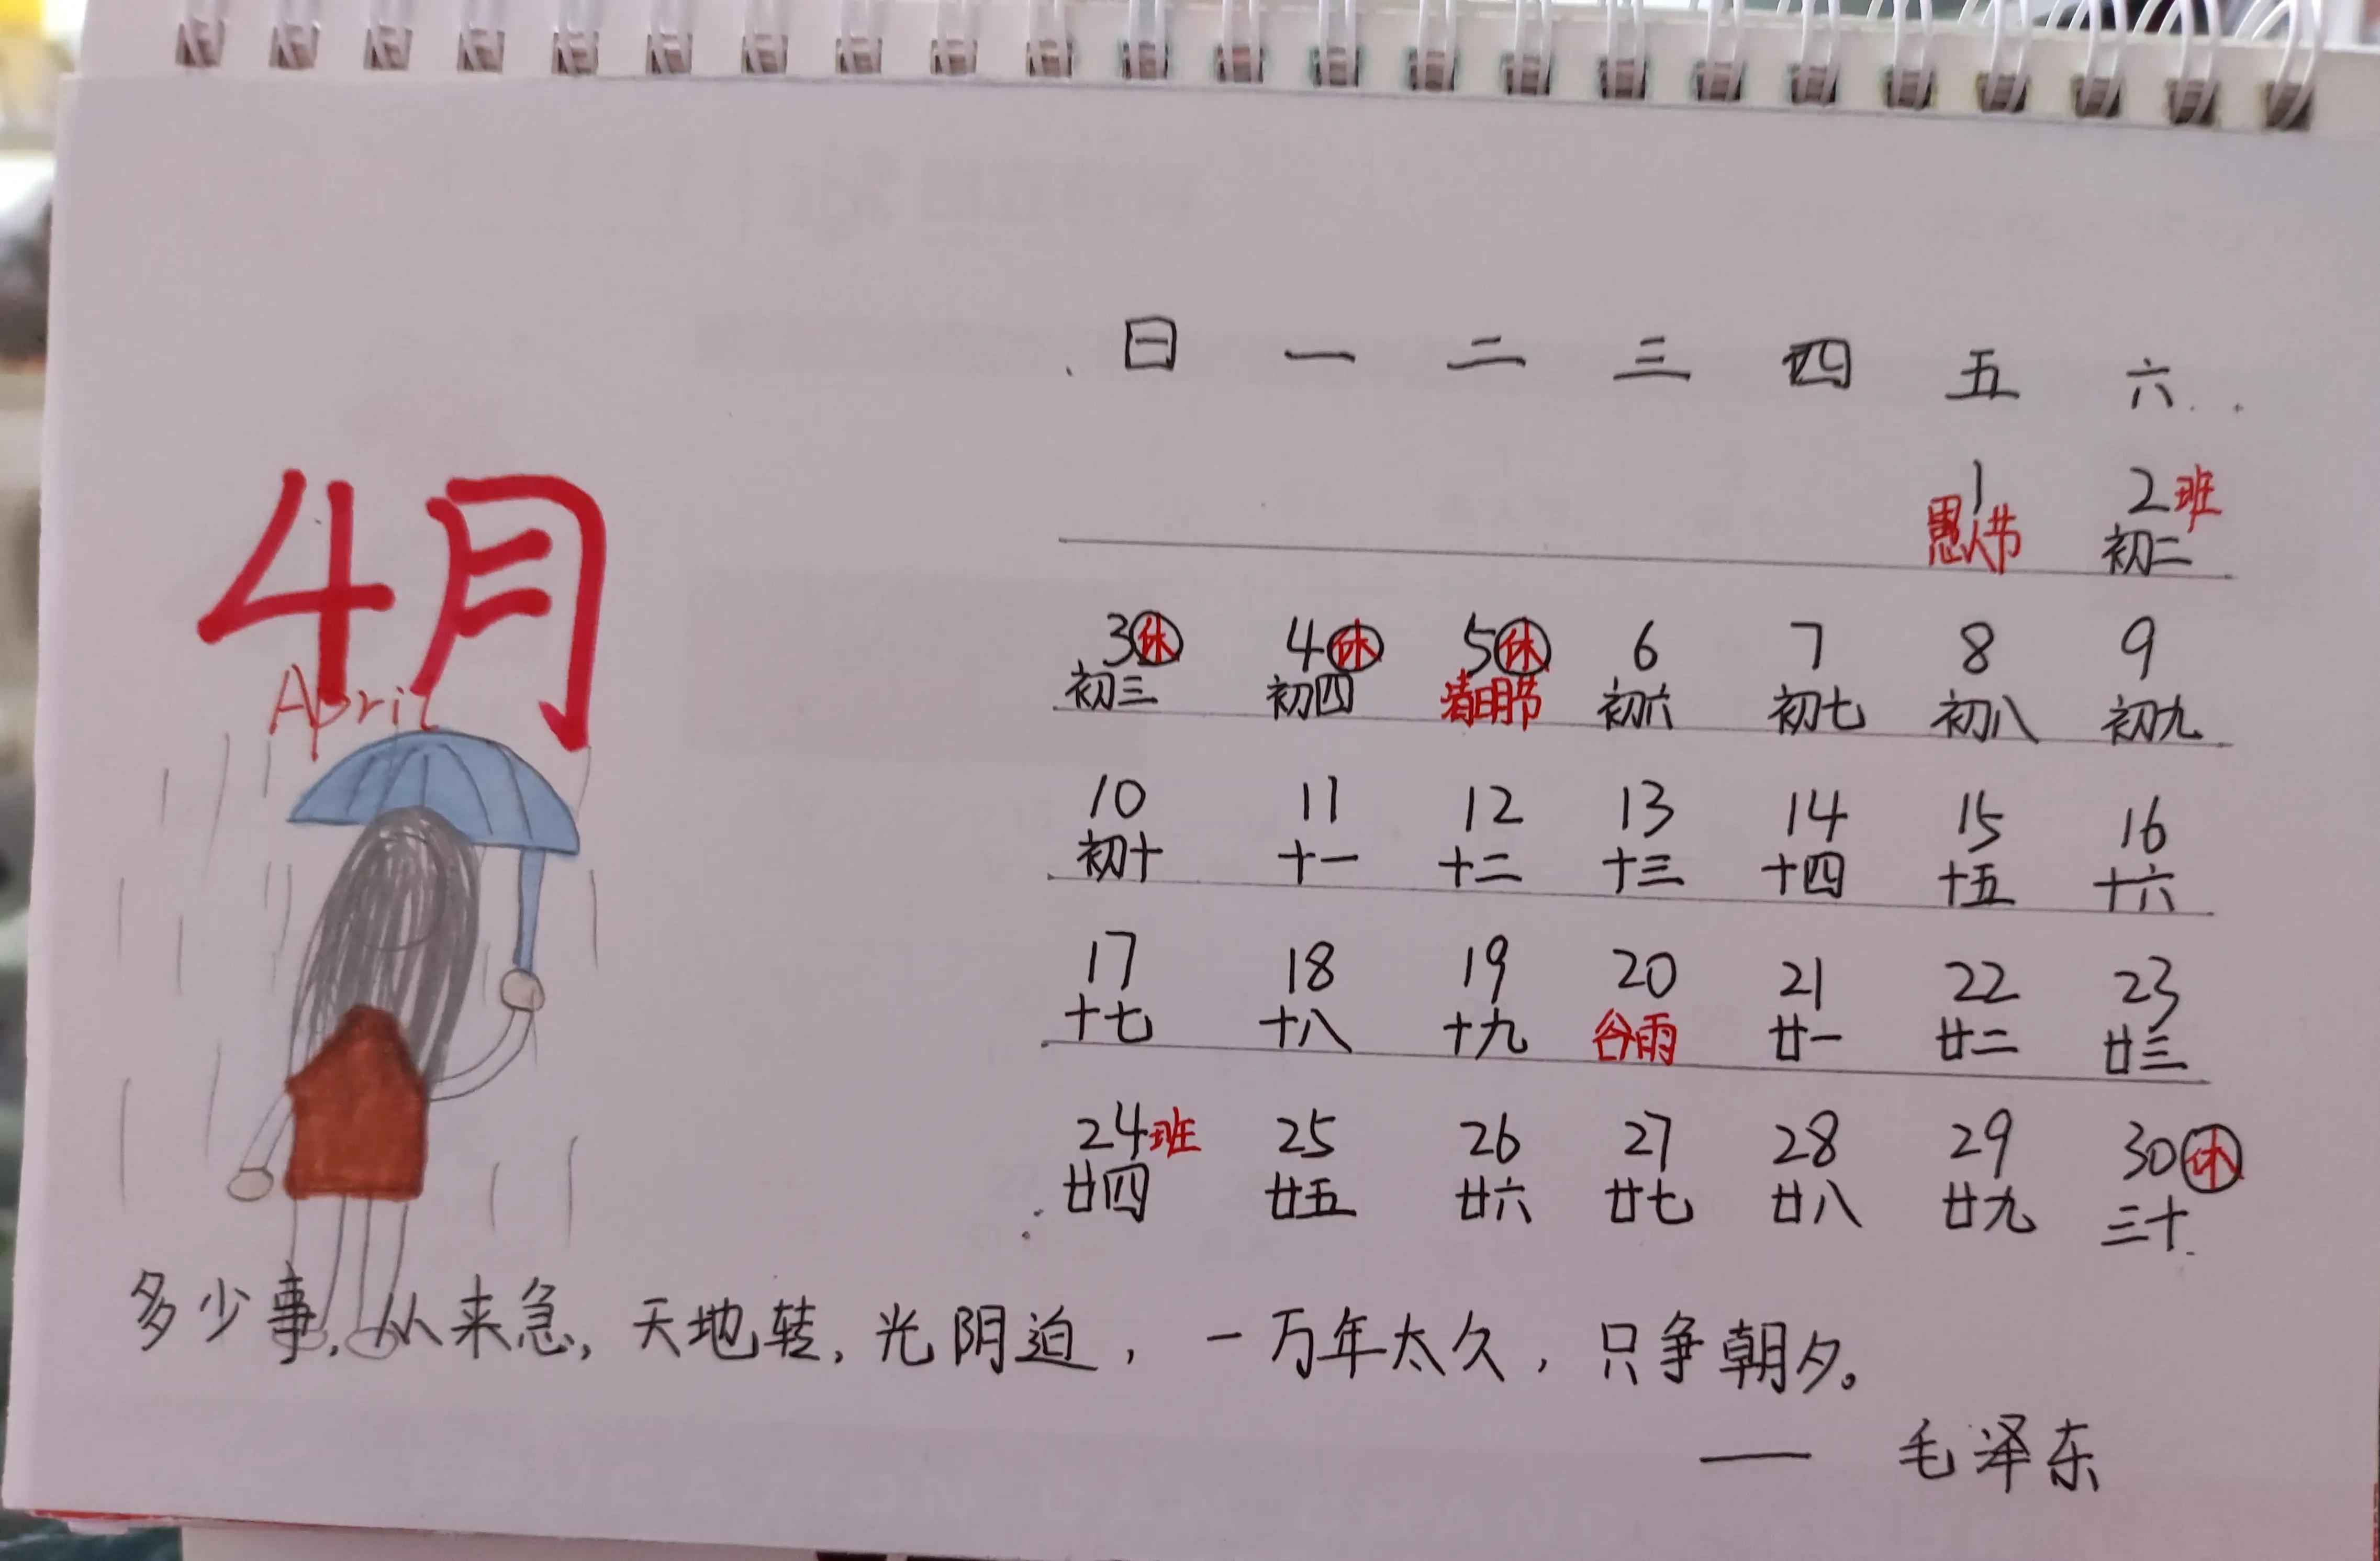 日 一 二 三 四 五 六
1 2班
愚人节 初二
4月
April
3休 4休 5休 6 7 8 9
初三 初四 清明节 初六 初七 初八 初九
10 11 12 13 14 15 16
初十 十一 十二 十三 十四 十五 十六
17 18 19 20 21 22 23
十七 十八 十九 谷雨 廿一 廿二 廿三
24班 25 26 27 28 29 30休
廿四 廿五 廿六 廿七 廿八 廿九 三十
多少事，从来急，天地转，光阴迫，一万年太久，只争朝夕。
—— 毛泽东